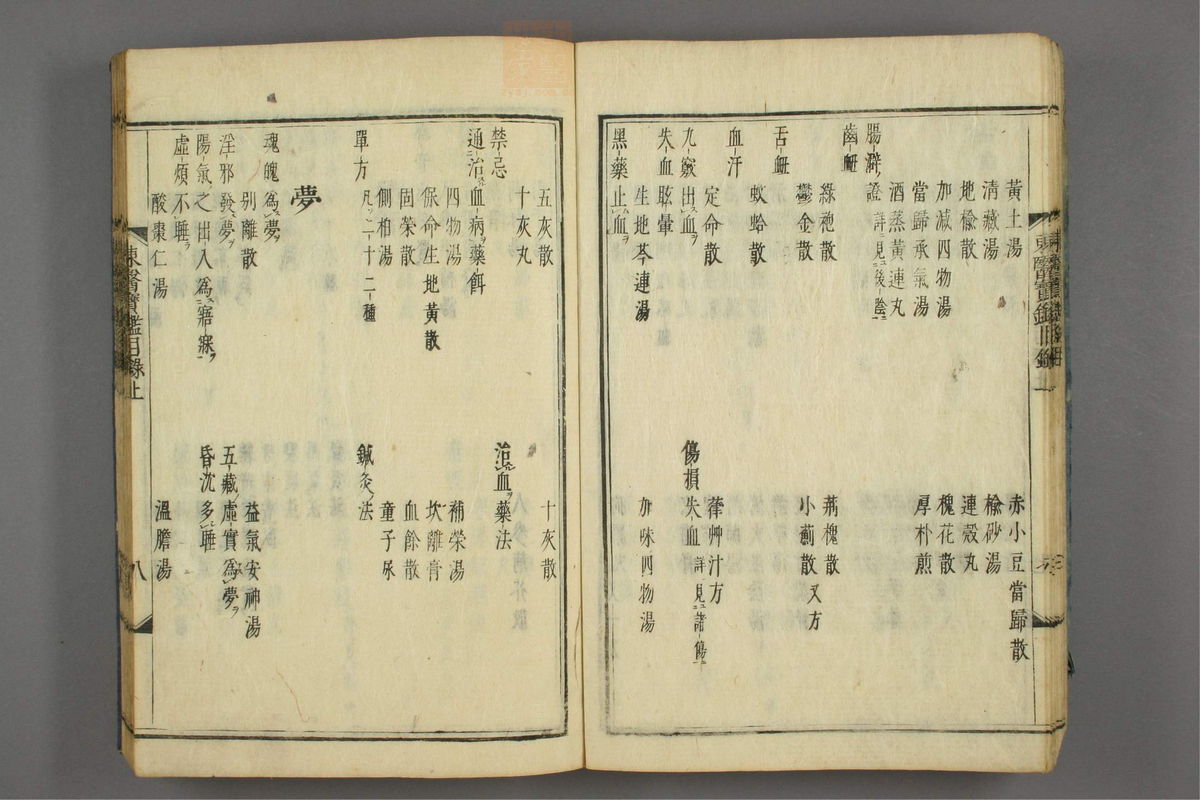 黃土湯
赤小豆當歸散
淸藏湯
楡砂湯
地楡散
連殼丸
加減四物湯
槐花散
當歸承氣湯
厚朴煎
酒蒸黃連丸
腸澼證 詳見後陰
齒衄
綠袍散
荊槐散
鬱金散
小薊散 又方
舌衄
蚊蛤散
血汗
定命散
葎艸汁方
九竅出血
傷損失血 詳見諸傷
失血眩暈
生地芩連湯
加味四物湯
黑藥止血
五灰散
十灰散
十灰丸
禁忌
治血藥法
通治血病藥餌
四物湯
補榮湯
保命生地黃散
坎離膏
固榮散
血餘散
側柏湯
童子尿
單方 凡二十二種
鍼灸法
夢
魂魄爲夢
別離散
益氣安神湯
淫邪發夢
五藏虛實爲夢
陽氣之出入爲寤寐
昏沈多睡
虛煩不睡
酸棗仁湯
溫膽湯
東醫寶鑑目錄上
八